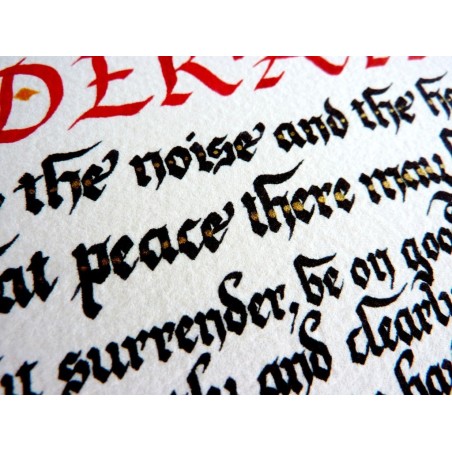 DERATA
the noise and the ha
at peace there may b
ut surrender, be on good
tly and clearly